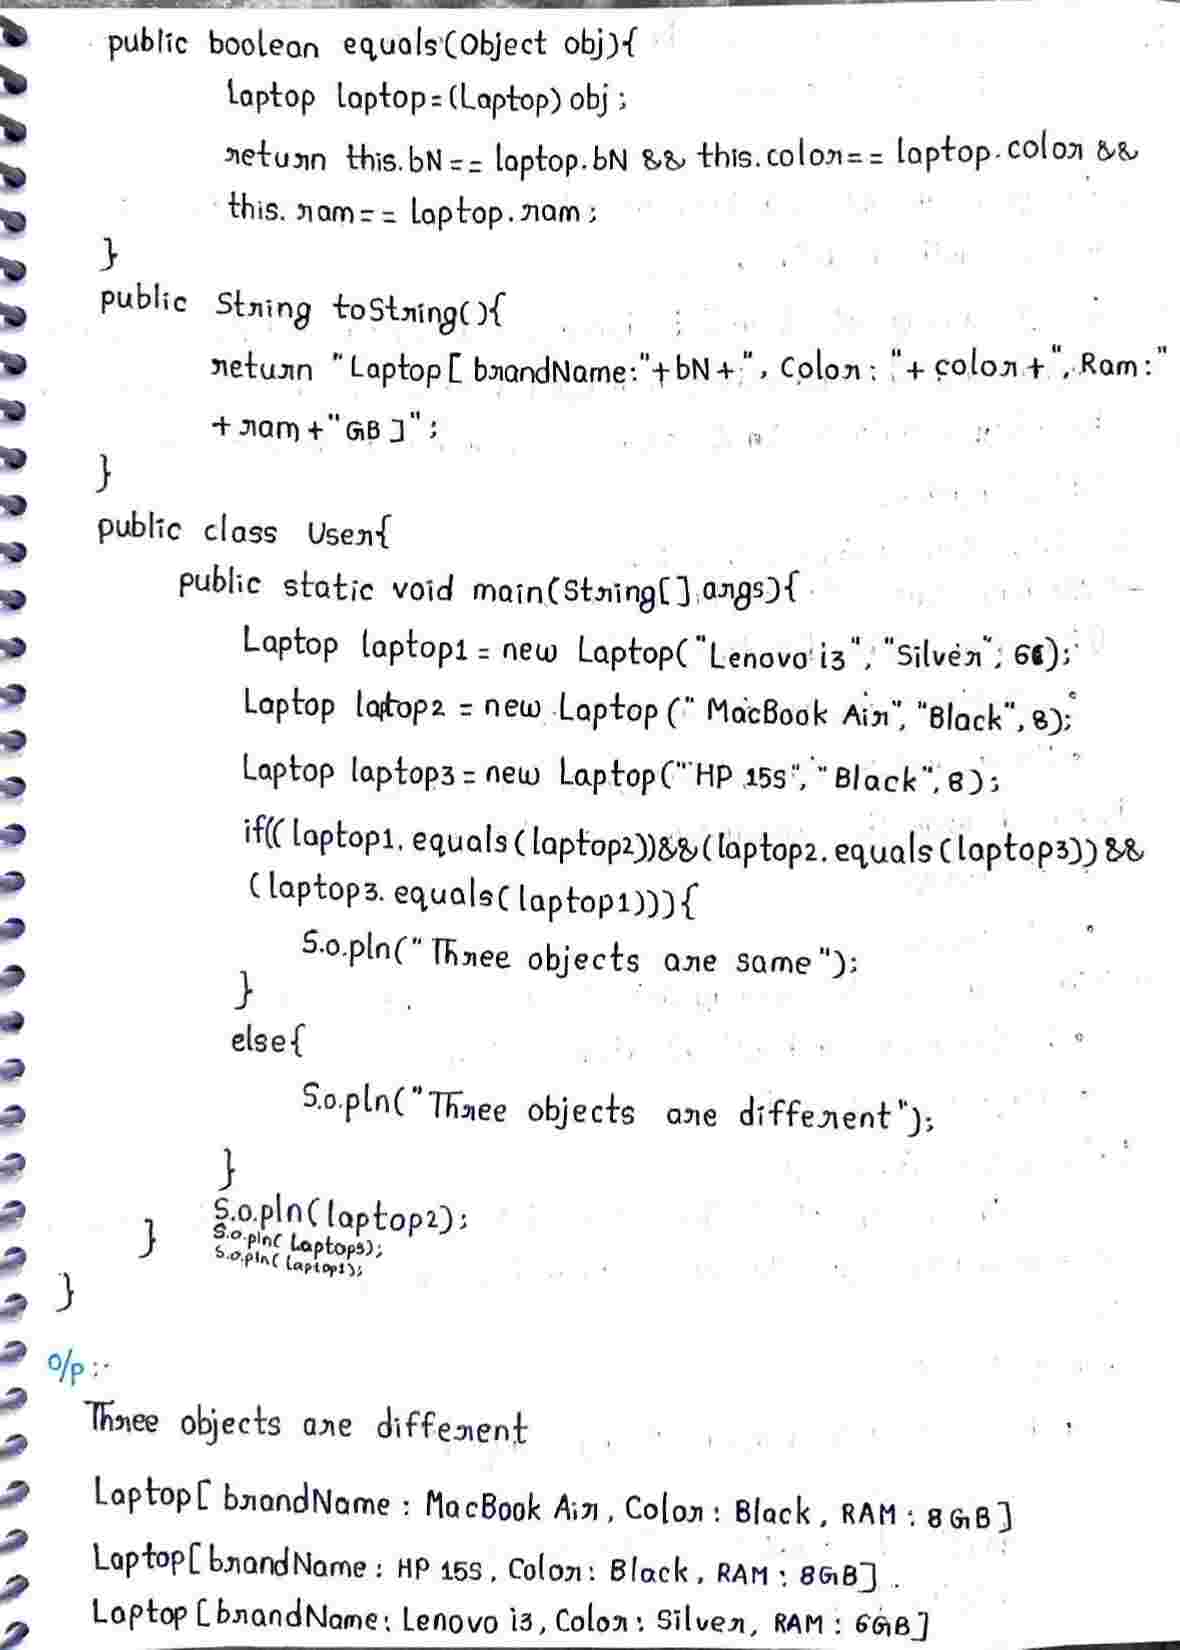 public boolean equals(Object obj){
Laptop laptop=(Laptop) obj;
return this.bN== laptop.bN && this.color== laptop.color &&
this.ram== laptop.ram;
}
public String toString(){
return "Laptop[ brandName:"+bN+", Color: "+ color+", Ram:"
+ram+"GB]";
}
public class User{
public static void main(String[] args){
Laptop laptop1 = new Laptop("Lenovo i3", "Silver", 6);
Laptop laptop2 = new Laptop(" MacBook Air", "Black", 8);
Laptop laptop3 = new Laptop("HP 15s", "Black", 8);
if((laptop1.equals(laptop2))&&(laptop2.equals(laptop3))&&
(laptop3.equals(laptop1))){
S.o.pln("Three objects are same");
}
else{
S.o.pln("Three objects are different");
}
S.o.pln(laptop2);
S.o.pln(Laptop3);
S.o.pln(Laptop1);
}
}
O/p :-
Three objects are different
Laptop[ brandName : MacBook Air, Color : Black, RAM : 8GB]
Laptop[brandName : HP 15s, Color: Black, RAM : 8GB].
Laptop [brandName: Lenovo i3, Color: Silver, RAM : 6GB]